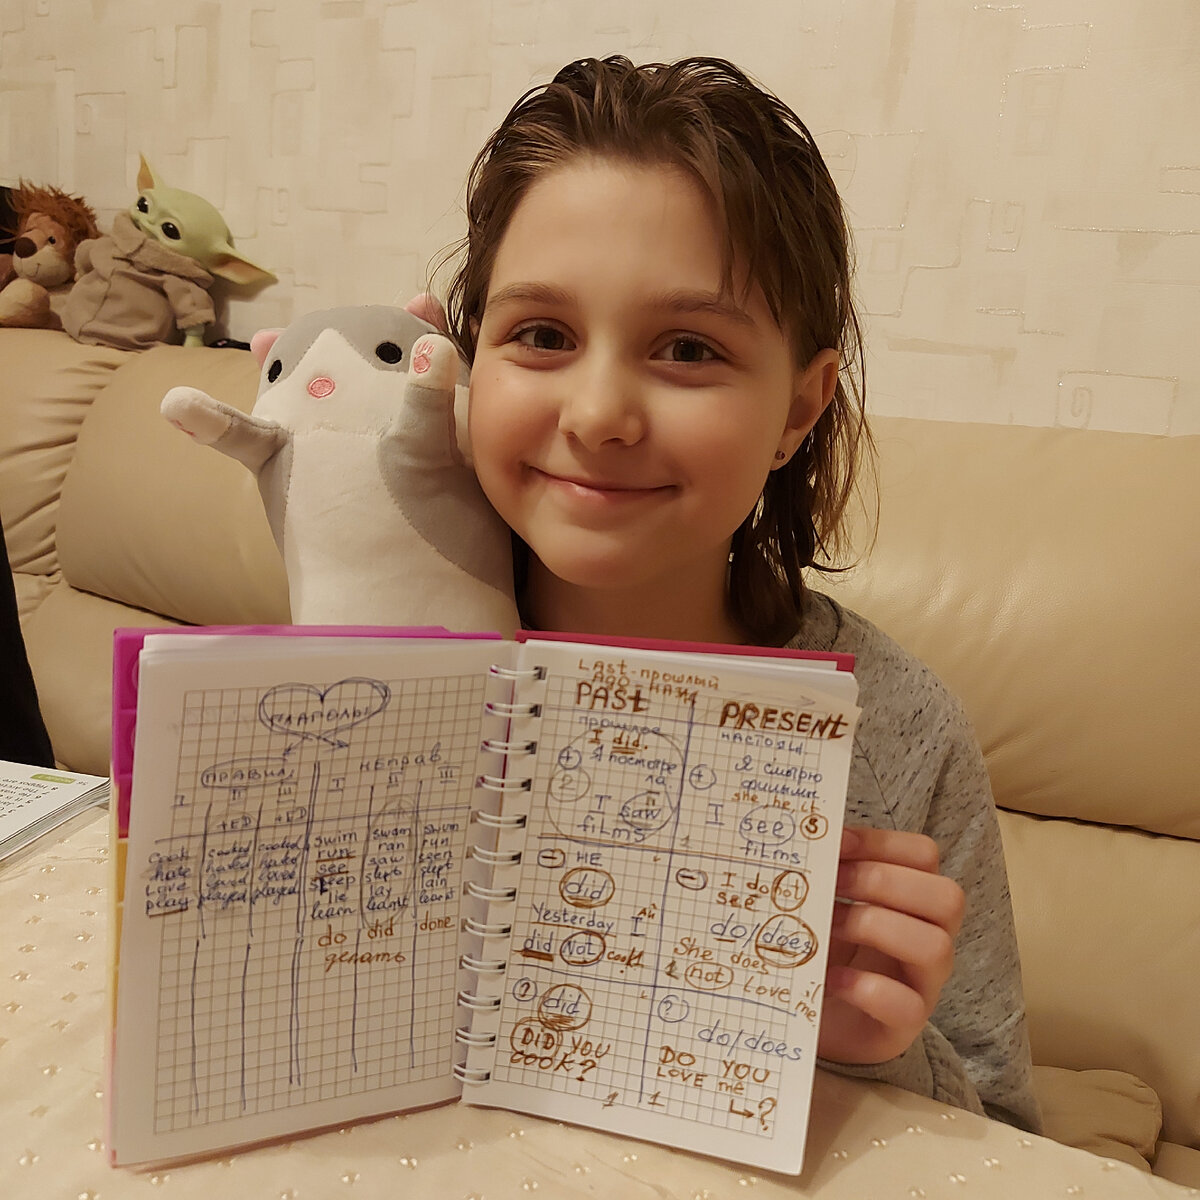 ГЛАГОЛЫ
ПРАВИЛ.
НЕПРАВ.
I II III I II III
+ED +ED
cook cooked cooked swim swam swum
hate hated hated run ran run
love loved loved see saw seen
play played played sleep slept slept
lie lay lain
learn learnt learnt
do did done
делать
LAst - прошлый
AGO - НАЗАД
PASt
прошлое
I did.
+ Я посмотре
ла
2
I saw
films
- НЕ
did
Yesterday I
did Not cook
? did
DID YOU
COOK?
1
PRESENt
настоящ.
+ Я смотрю
фильмы.
she he it
I see s
films
1
- I do not
see
do/does
She does
1 not Love :(
me
? do/does
DO YOU
LOVE me
?
1